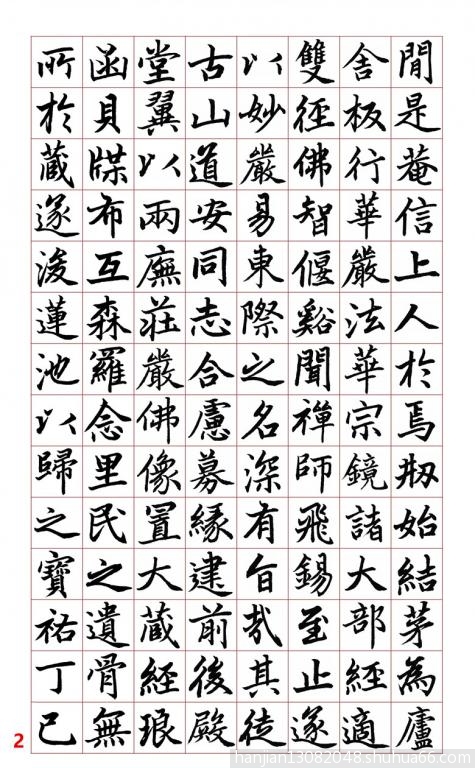 閒是菴信上人於焉剏始結茅為廬
舍板行華嚴法華宗鏡諸大部經適
雙徑佛智偃谿聞禪師飛錫至止遂
以妙嚴易東際之名深有旨哉其徒
古山道安同志合慮募緣建前後殿
堂翼以兩廡莊嚴佛像置大蔵經琅
函貝牒布互森羅念里民之遺骨無
所於蔵遂浚蓮池以歸之寶祐丁巳
2
hanjian13082048.shuhua66.com